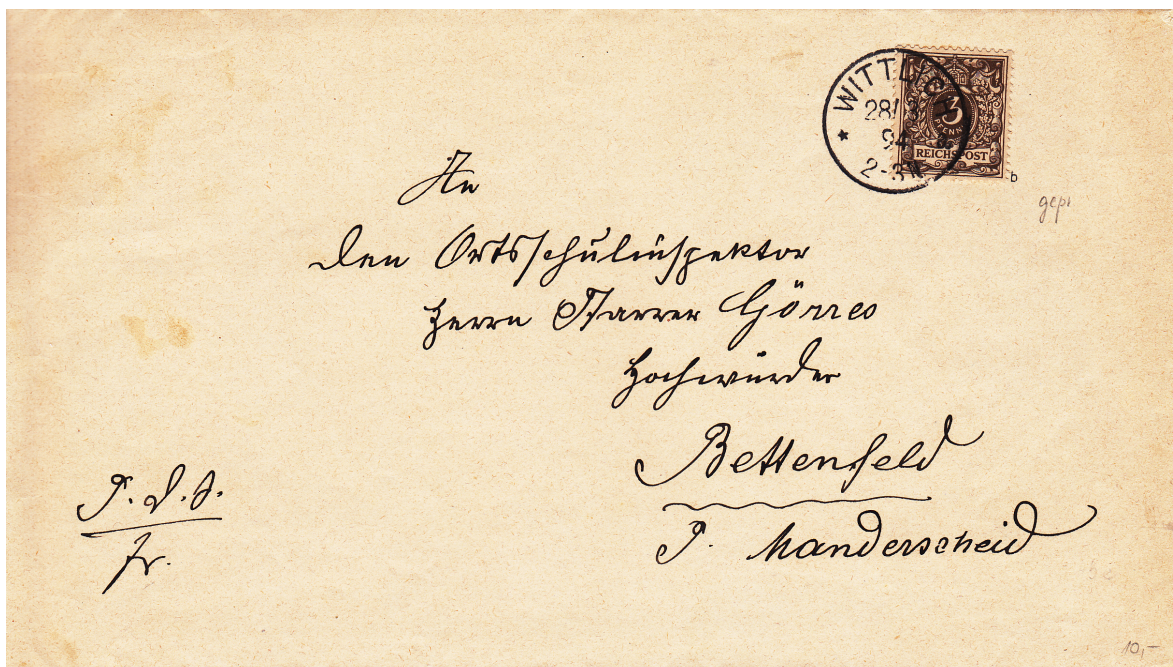 WITTLICH
28/3
94
2-3N
3
PFENNIG
REICHSPOST
b
gepr
An
den Ortsschulinspektor
Herrn Pfarrer Görres
Hochwürden
Bettenfeld
P. Manderscheid
P. d. S.
fr.
10,-